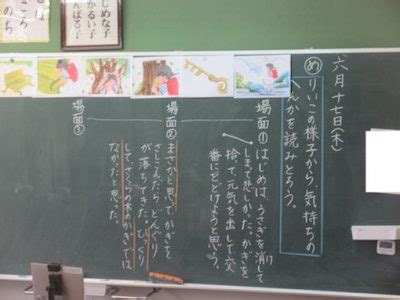 六月十七日(木)
め りいこの様子から、気持ちの
へんかを読みとろう。
場面①
はじめは、うさぎを消して
しまって悲しかった。かぎを
拾って、元気を出して交
番にとどけようと思う。
場面②
まさかと思って、かぎを
さしこんだら、どんぐり
が落ちてきた。びっくり
して、さくらの木のかぎでは
なかったと思った。
場面③
じめな子
かるい子
んばる子
こころ
のち